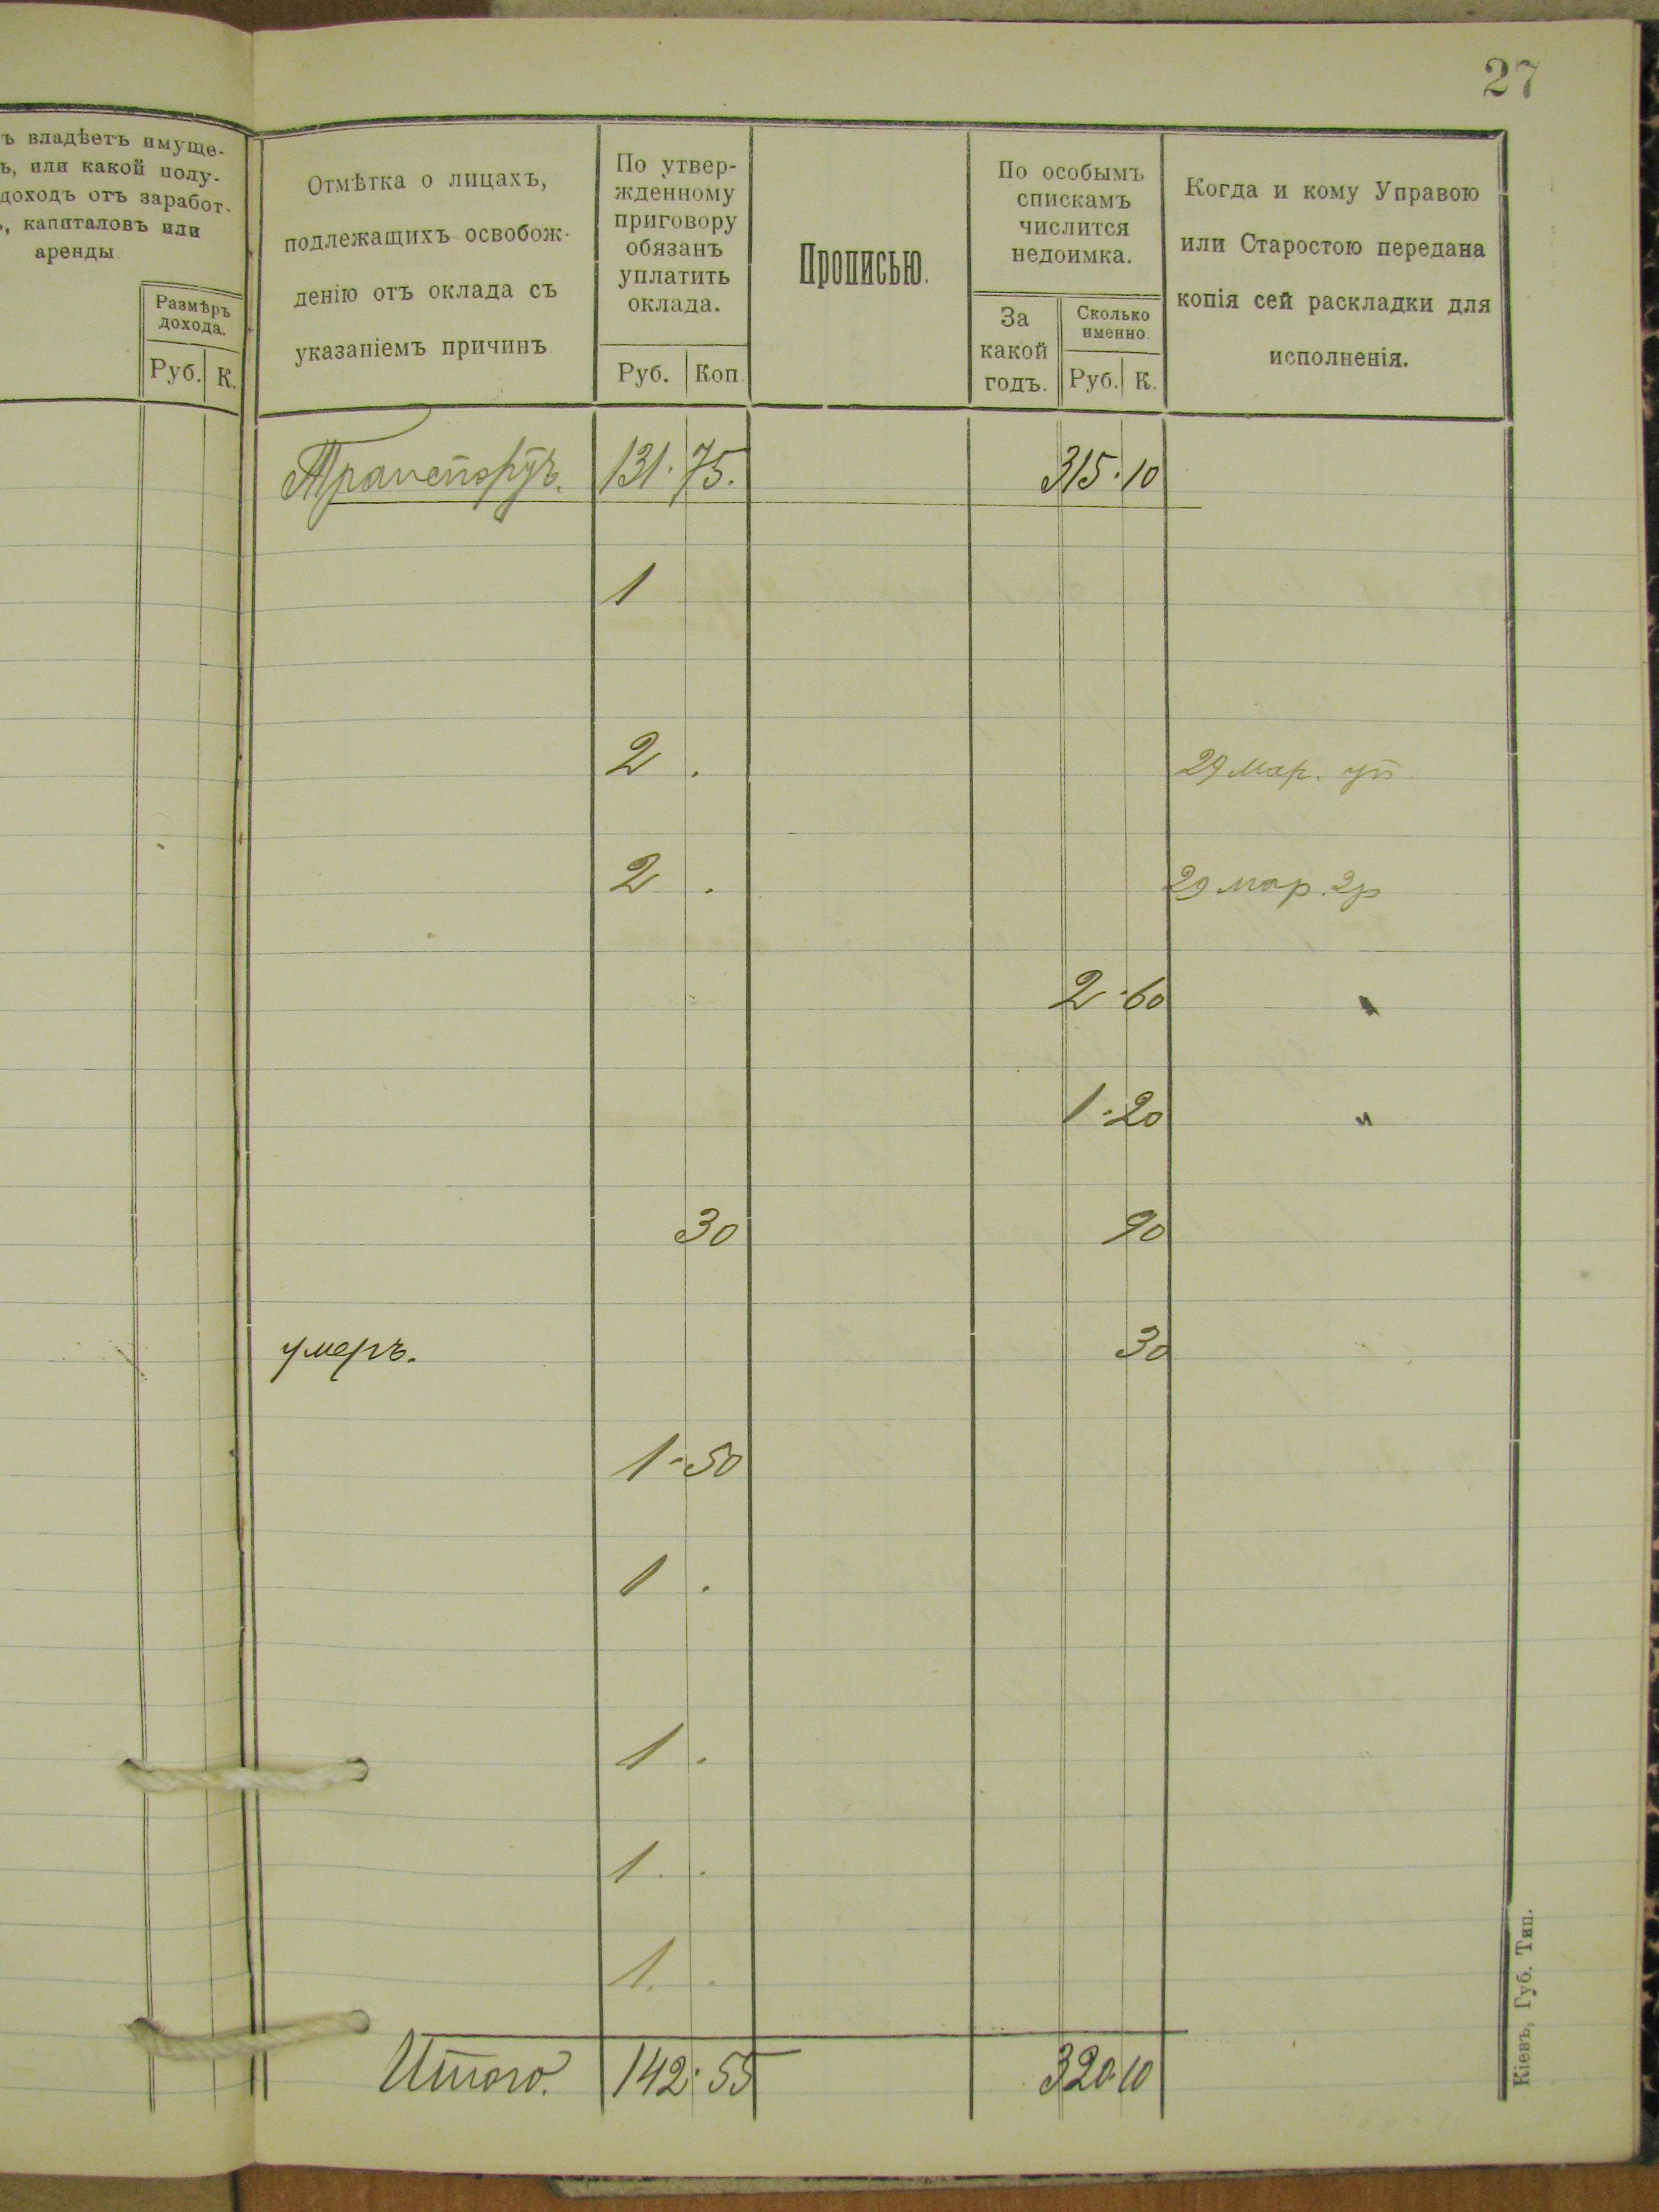 27
ъ владѣетъ имуще-
ь, или какой полу-
доходъ отъ заработ-
ъ, капиталовъ или
аренды.
Размѣръ
дохода.
Руб. К.
Отмѣтка о лицахъ,
подлежащихъ освобож-
денію отъ оклада съ
указаніемъ причинъ.
По утвер-
жденному
приговору
обязанъ
уплатить
оклада.
Руб. Коп.
Прописью.
По особымъ
спискамъ
числится
недоимка.
За
какой
годъ.
Сколько
именно.
Руб. К.
Когда и кому Управою
или Старостою передана
копія сей раскладки для
исполненія.
Транспортъ. 131. 75. 315. 10
1
2 . 29 мар. уп.
2 . 29 мар. 2р
2-60 "
1-20 "
30 90
умеръ. 30
1-50
1 .
1 .
1 .
1 .
Итого. 142. 55 320.10
Кіевъ, Губ. Тип.